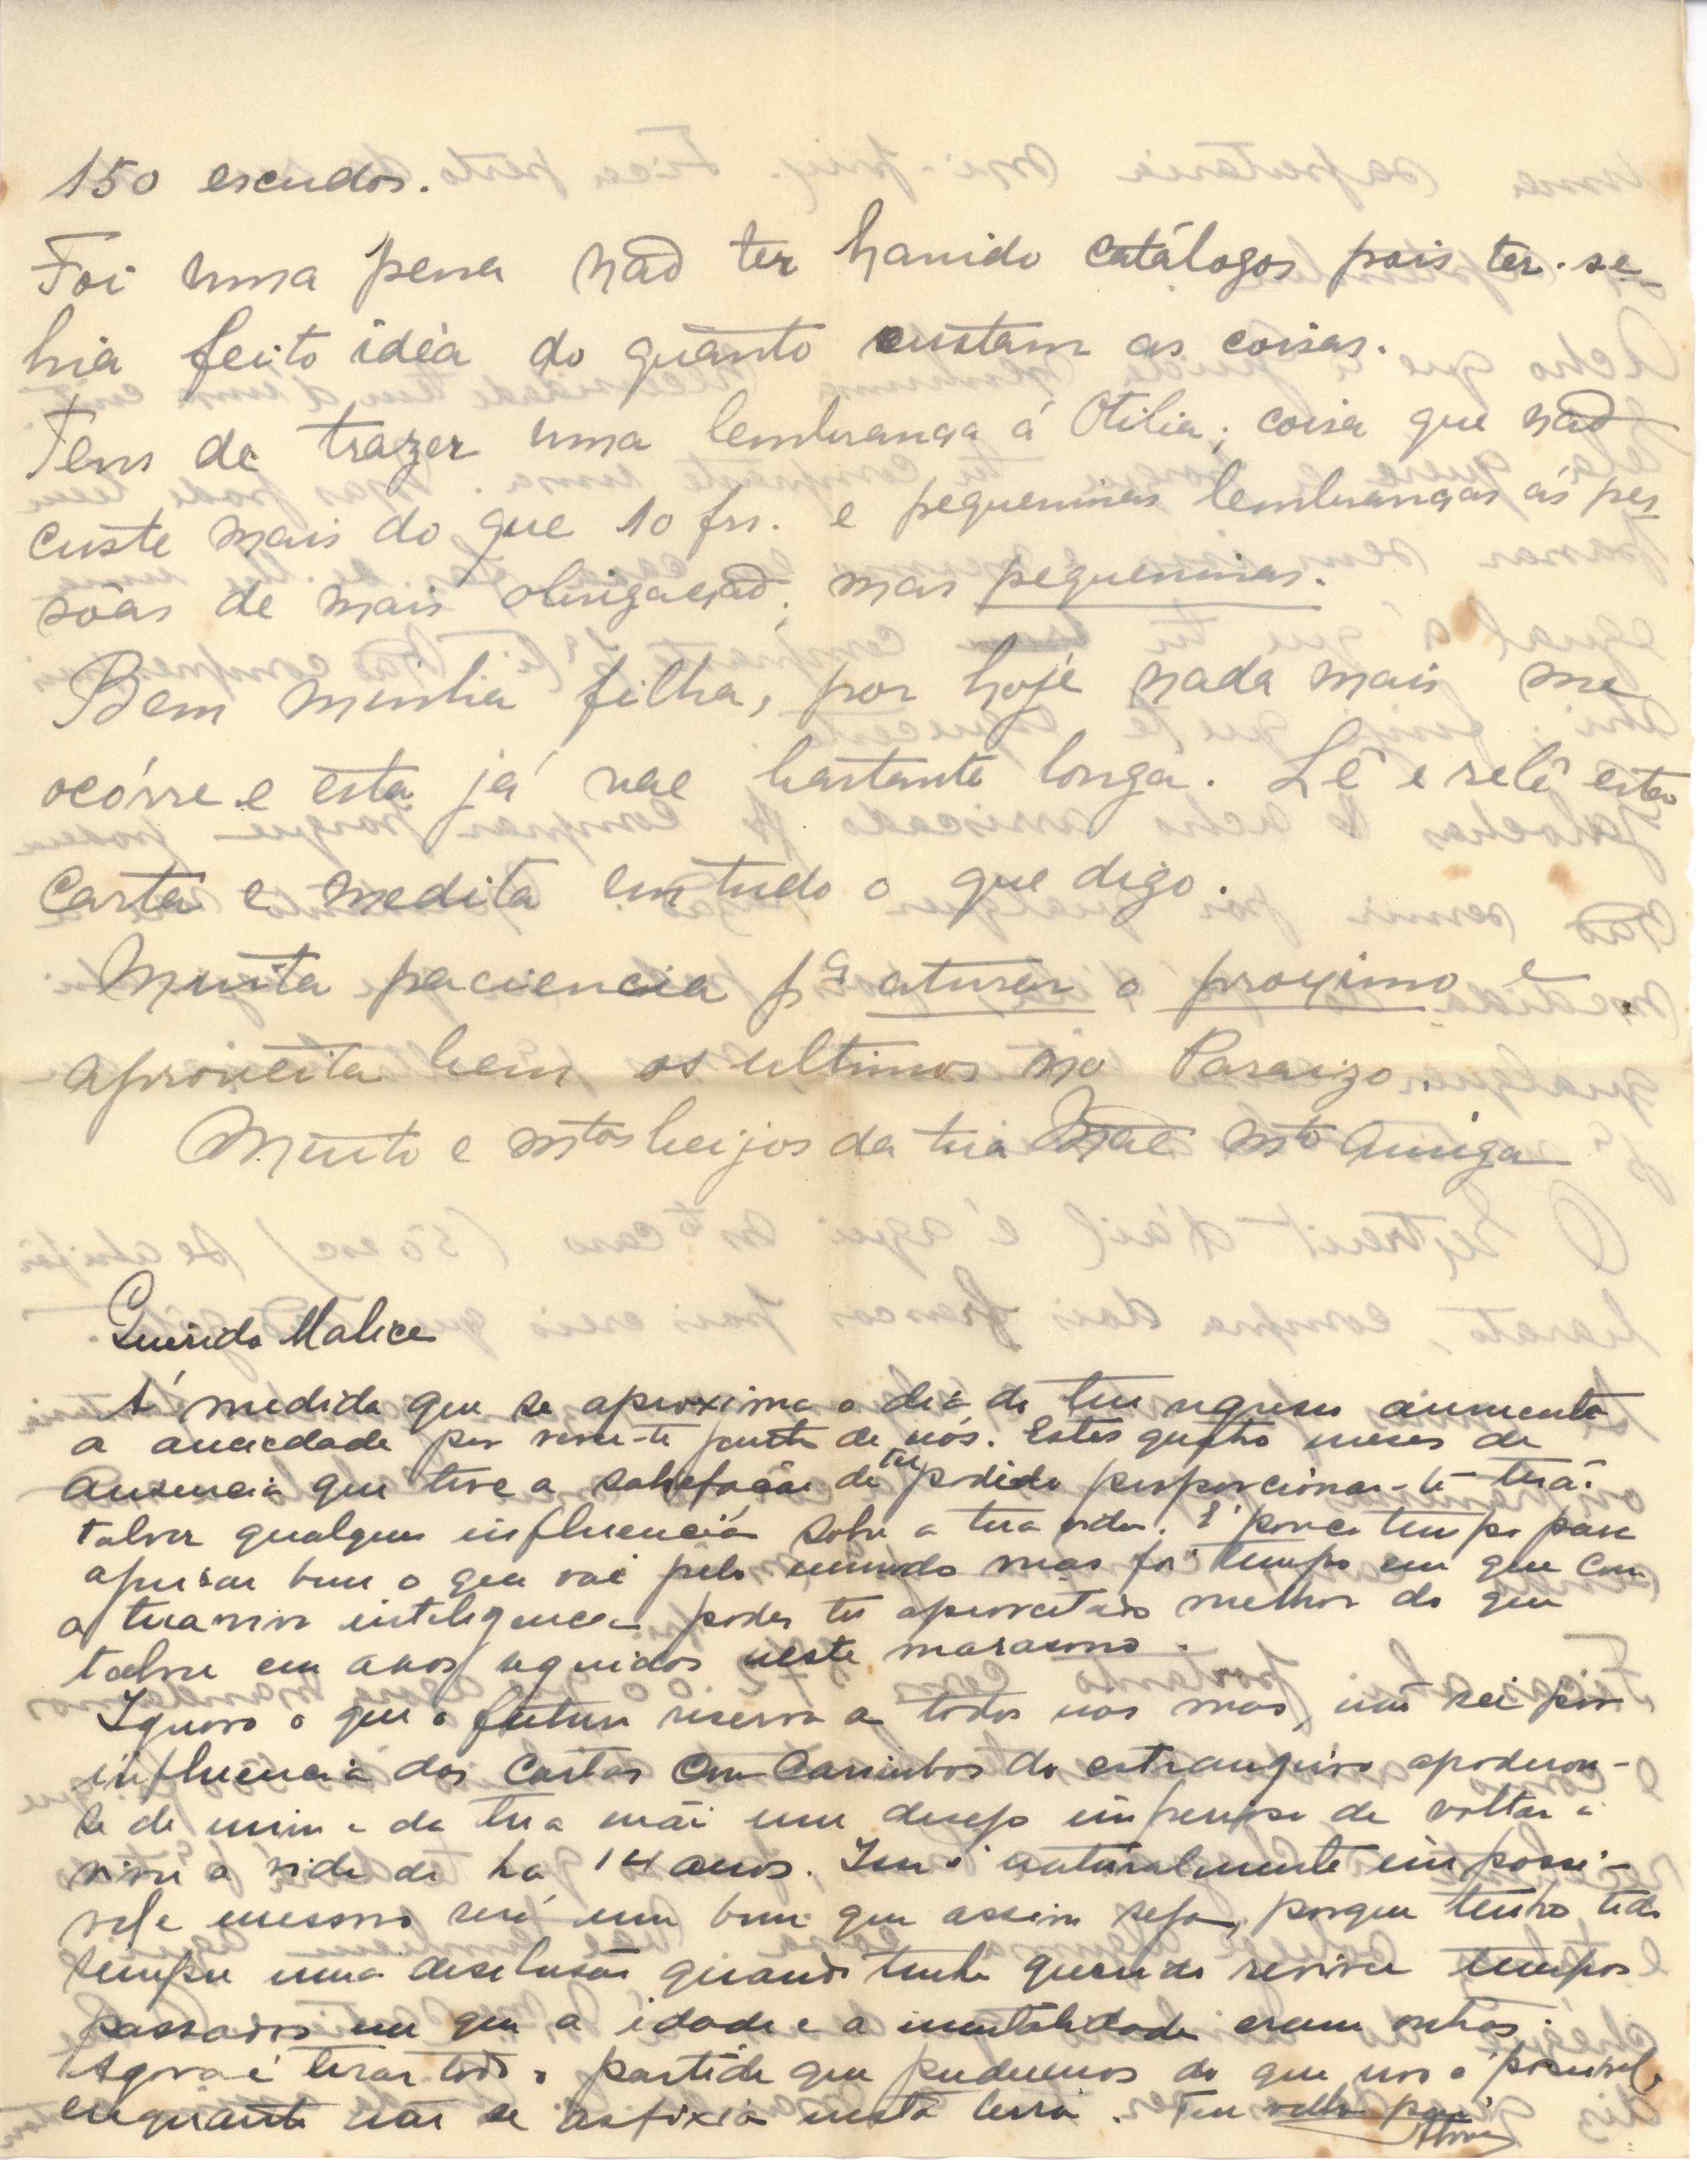 150 escudos.
Foi uma pena não ter havido catálogos pois ter-se-
hia feito idéa do quanto custam as coisas.
Tens de trazer uma lembrança á Otilia; coisa que não
custe mais do que 10 frs. e pequeninas lembranças ás pes
sôas de mais obrigação, mas pequeninas.
Bem minha filha, por hoje nada mais me
ocórre e esta já vae bastante longa. Lê e relê esta
carta e medita em tudo o que digo.
Muita paciencia pª aturar o proximo e
aproveita bem os ultimos no Paraizo.
Muito e mtos beijos da tua Mãe mto Amiga
Querida Malice
Á medida que se aproxima o dia do teu regresso aumenta
a anciedade por rever-te junto de nós. Estes quatro meses de
ausencia que tive a satisfação de ter podido proporcionar-te terá
talvez qualquer influencia sobre a tua vida. É pouco tempo para
apurar bem o que vai pelo mundo mas foi tempo em que com
a tua viva inteligencia podes ter aproveitado melhor do que
talvez em anos seguidos neste marasmo.
Ignoro o que o futuro reserva a todos nós mas, não sei por
influencia das cartas com carimbos do estrangeiro apoderou-
se de mim e da tua mãi um desejo imperioso de voltar a
viver a vida de ha 14 anos. Isso é naturalmente impossi-
vel e mesmo será um bem que assim seja, porque tenho tido
sempre uma desilusão quando tenho querido reviver tempos
passados em que a idade e a mentalidade eram outras.
Agora é tirar todo o partido que pudermos do que nos é possivel e
enquanto não se asfixia nesta terra. Teu velho pai